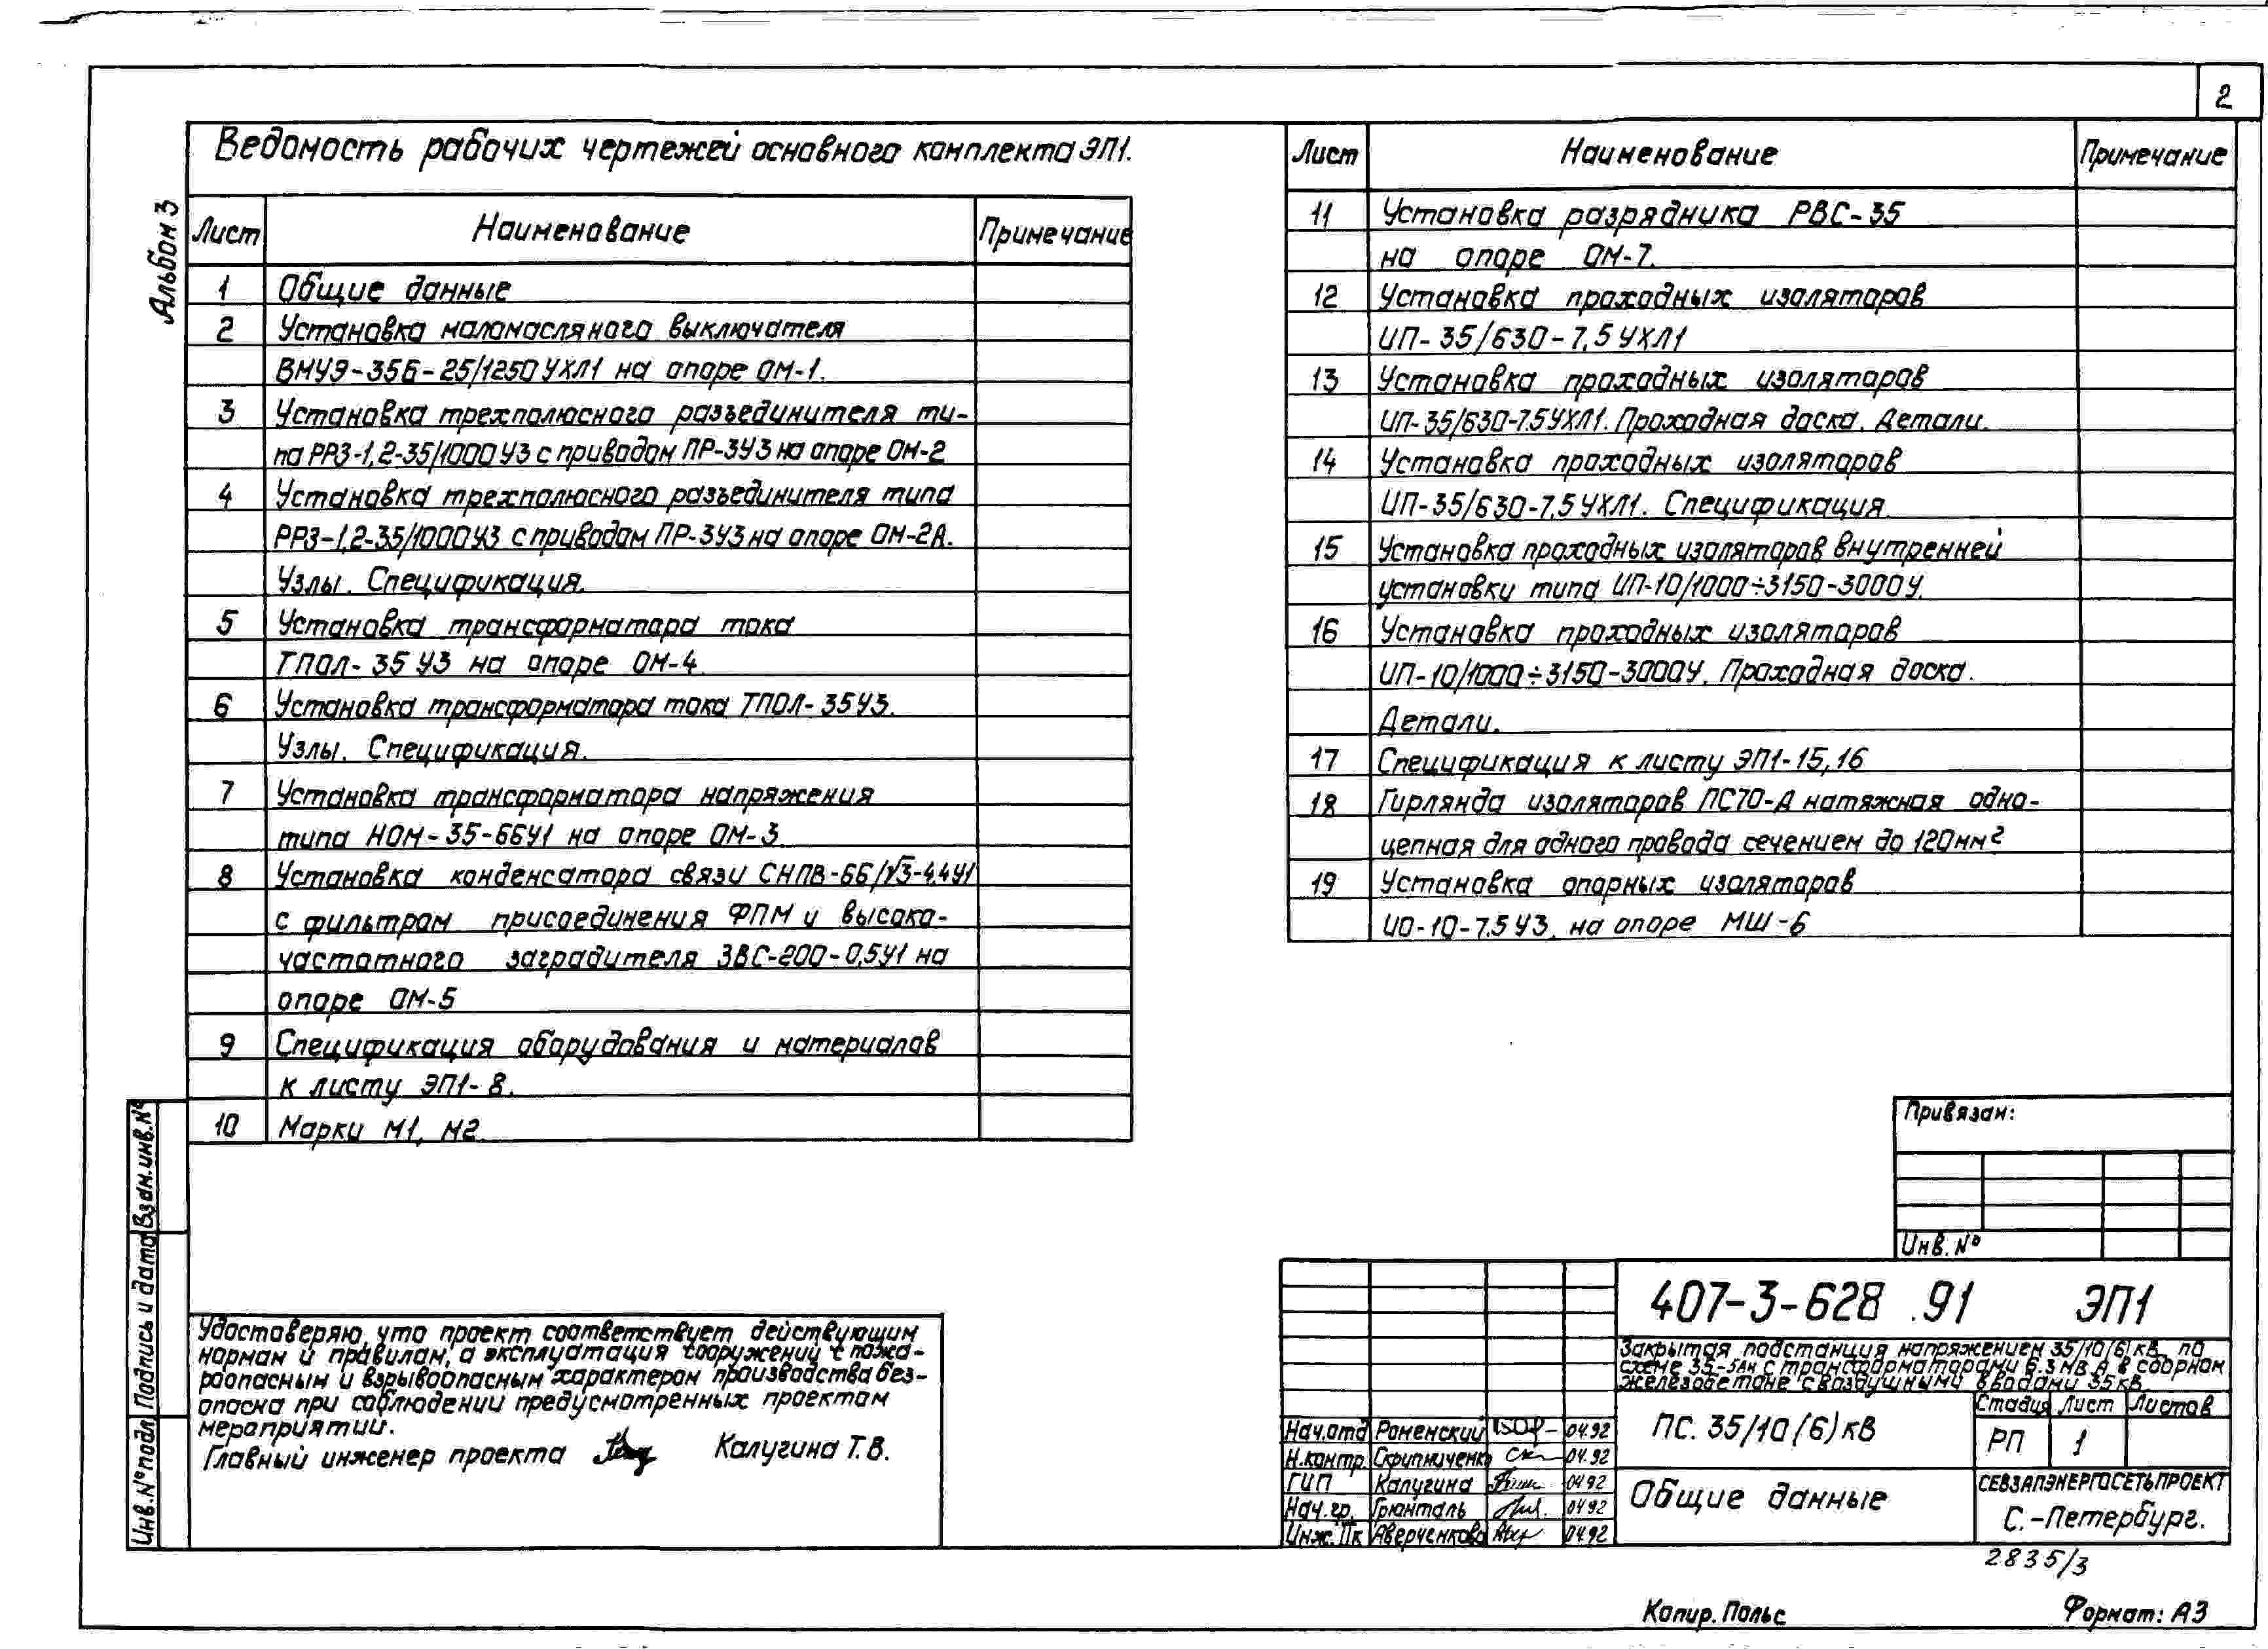 2
Альбом 3
Ведомость рабочих чертежей основного комплекта ЭП1.
Лист Наименование Примечание
1 Общие данные
2 Установка маломасляного выключателя
ВМУЭ-35Б-25/1250 УХЛ1 на опоре ОМ-1.
3 Установка трехполюсного разъединителя ти-
па РРЗ-1,2-35/1000 У3 с приводом ПР-3У3 на опоре ОМ-2
4 Установка трехполюсного разъединителя типа
РРЗ-1,2-35/1000У3 с приводом ПР-3У3 на опоре ОМ-2А.
Узлы. Спецификация.
5 Установка трансформатора тока
ТПОЛ-35 У3 на опоре ОМ-4.
6 Установка трансформатора тока ТПОЛ-35У3.
Узлы. Спецификация.
7 Установка трансформатора напряжения
типа НОМ-35-66У1 на опоре ОМ-3.
8 Установка конденсатора связи СНПВ-66/√3-4,4У1
с фильтром присоединения ФПМ и высоко-
частотного заградителя ЗВС-200-0,5У1 на
опоре ОМ-5
9 Спецификация оборудования и материалов
к листу ЭП1-8.
10 Марки М1, М2.
Лист Наименование Примечание
11 Установка разрядника РВС-35
на опоре ОМ-7.
12 Установка проходных изоляторов
ИП-35/630-7,5 УХЛ1
13 Установка проходных изоляторов
ИП-35/630-7.5УХЛ1. Проходная доска. Детали.
14 Установка проходных изоляторов
ИП-35/630-7,5 УХЛ1. Спецификация
15 Установка проходных изоляторов внутренней
установки типа ИП-10/1000÷3150-3000У.
16 Установка проходных изоляторов
ИП-10/1000÷3150-3000У. Проходная доска.
Детали.
17 Спецификация к листу ЭП1-15,16
18 Гирлянда изоляторов ПС70-А натяжная одно-
цепная для одного провода сечением до 120мм²
19 Установка опорных изоляторов
ИО-10-7.5 У3. на опоре МШ-6
Взам.инв.№
Подпись и дата
Инв.№подл
Удостоверяю, что проект соответствует действующим
нормам и правилам, а эксплуатация сооружений с пожа-
роопасным и взрывоопасным характером производства без-
опасна при соблюдении предусмотренных проектом
мероприятий.
Главный инженер проекта Калугина Т.В.
Привязан:
Инв.№
407-3-628 .91 ЭП1
Закрытая подстанция напряжением 35/10(6)кВ по
схеме 35-5АН с трансформаторами 6.3 МВ А в сборном
железобетоне с воздушными вводами 35кВ
Нач.отд Роменский 04.92
Н.контр. Скрипниченко 04.92
ГИП Калугина 04 92
Нач.гр. Грюнталь 04 92
Инж.IIк Аверченкова 04.92
ПС. 35/10(6)кВ
Стадия Лист Листов
РП 1
Общие данные
СЕВЗАПЭНЕРГОСЕТЬПРОЕКТ
С.-Петербург.
2835/3
Копир. Польс
Формат: А3